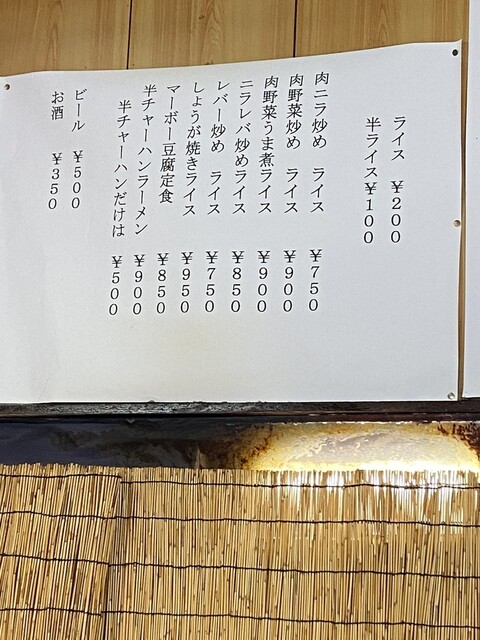 ライス ￥200
半ライス￥100
肉ニラ炒め ライス ￥750
肉野菜炒め ライス ￥900
肉野菜うま煮ライス ￥900
ニラレバ炒めライス ￥850
レバー炒め ライス ￥750
しょうが焼きライス ￥950
マーボー豆腐定食 ￥850
半チャーハンラーメン ￥900
半チャーハンだけは ￥500
ビール ￥500
お酒 ￥350